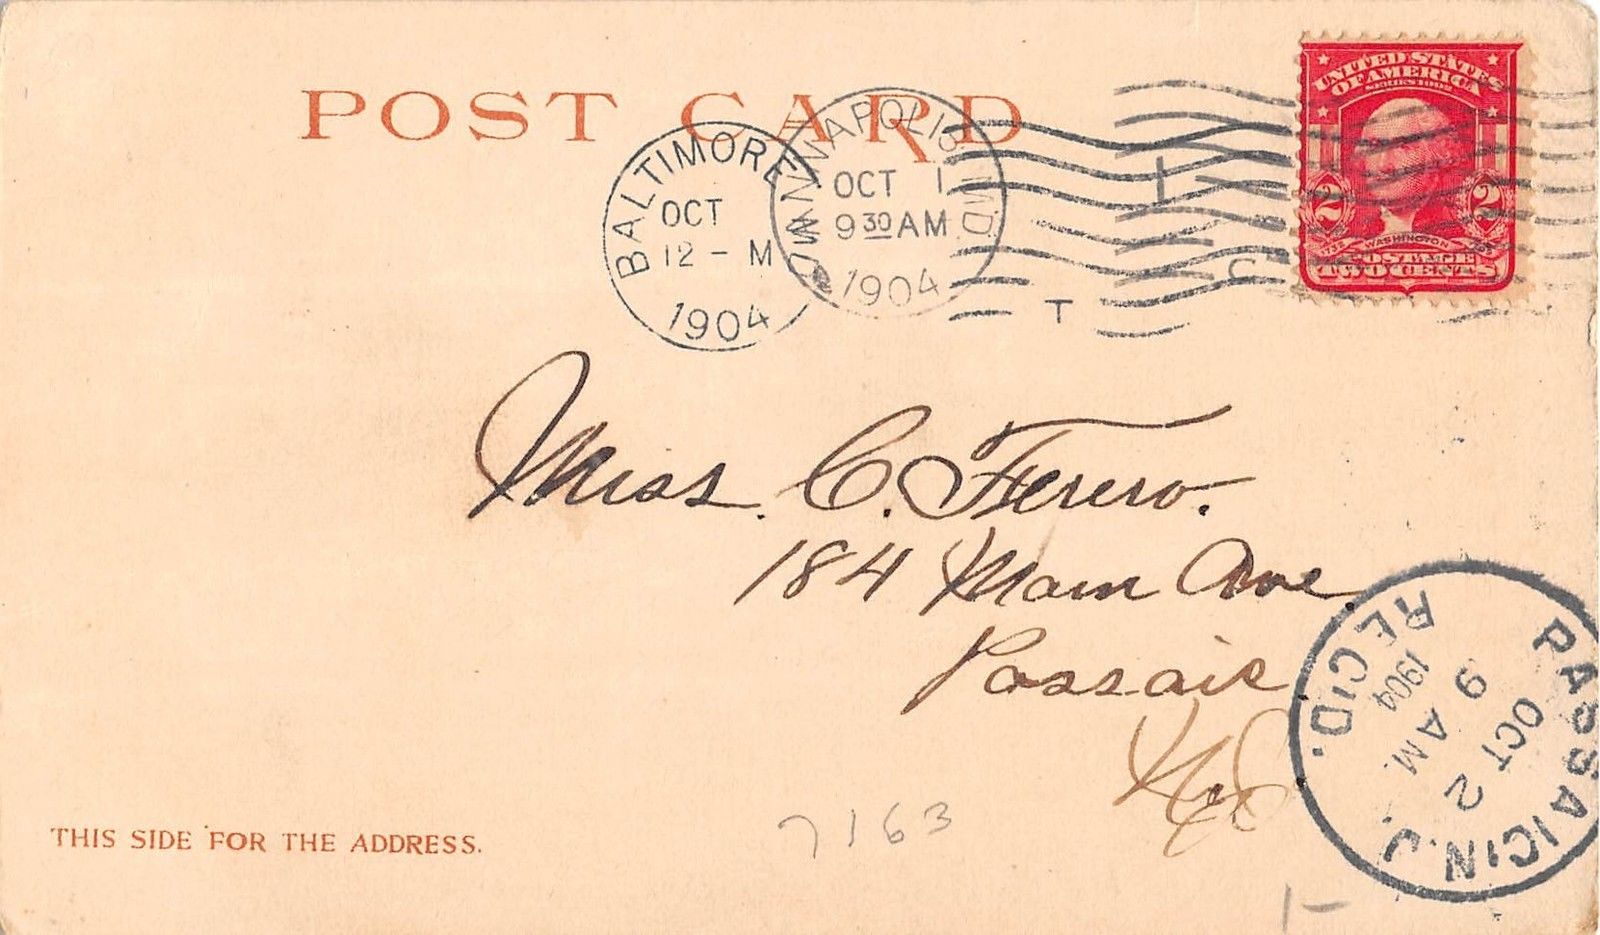 POST CARD
BALTIMORE, MD.
OCT
12 - M
1904
ANNAPOLIS MD.
OCT 1
9 30 AM
1904
1
T
C
UNITED STATES
OF AMERICA
SERIES 1902
2 2
1732 WASHINGTON 1799
POSTAGE
TWO CENTS
Miss. C. Ferero.
184 Main Ave.
Passaic
N. J.
PASSAIC, N.J.
OCT 2
9 AM.
1904
REC'D.
THIS SIDE FOR THE ADDRESS.
7163
1-